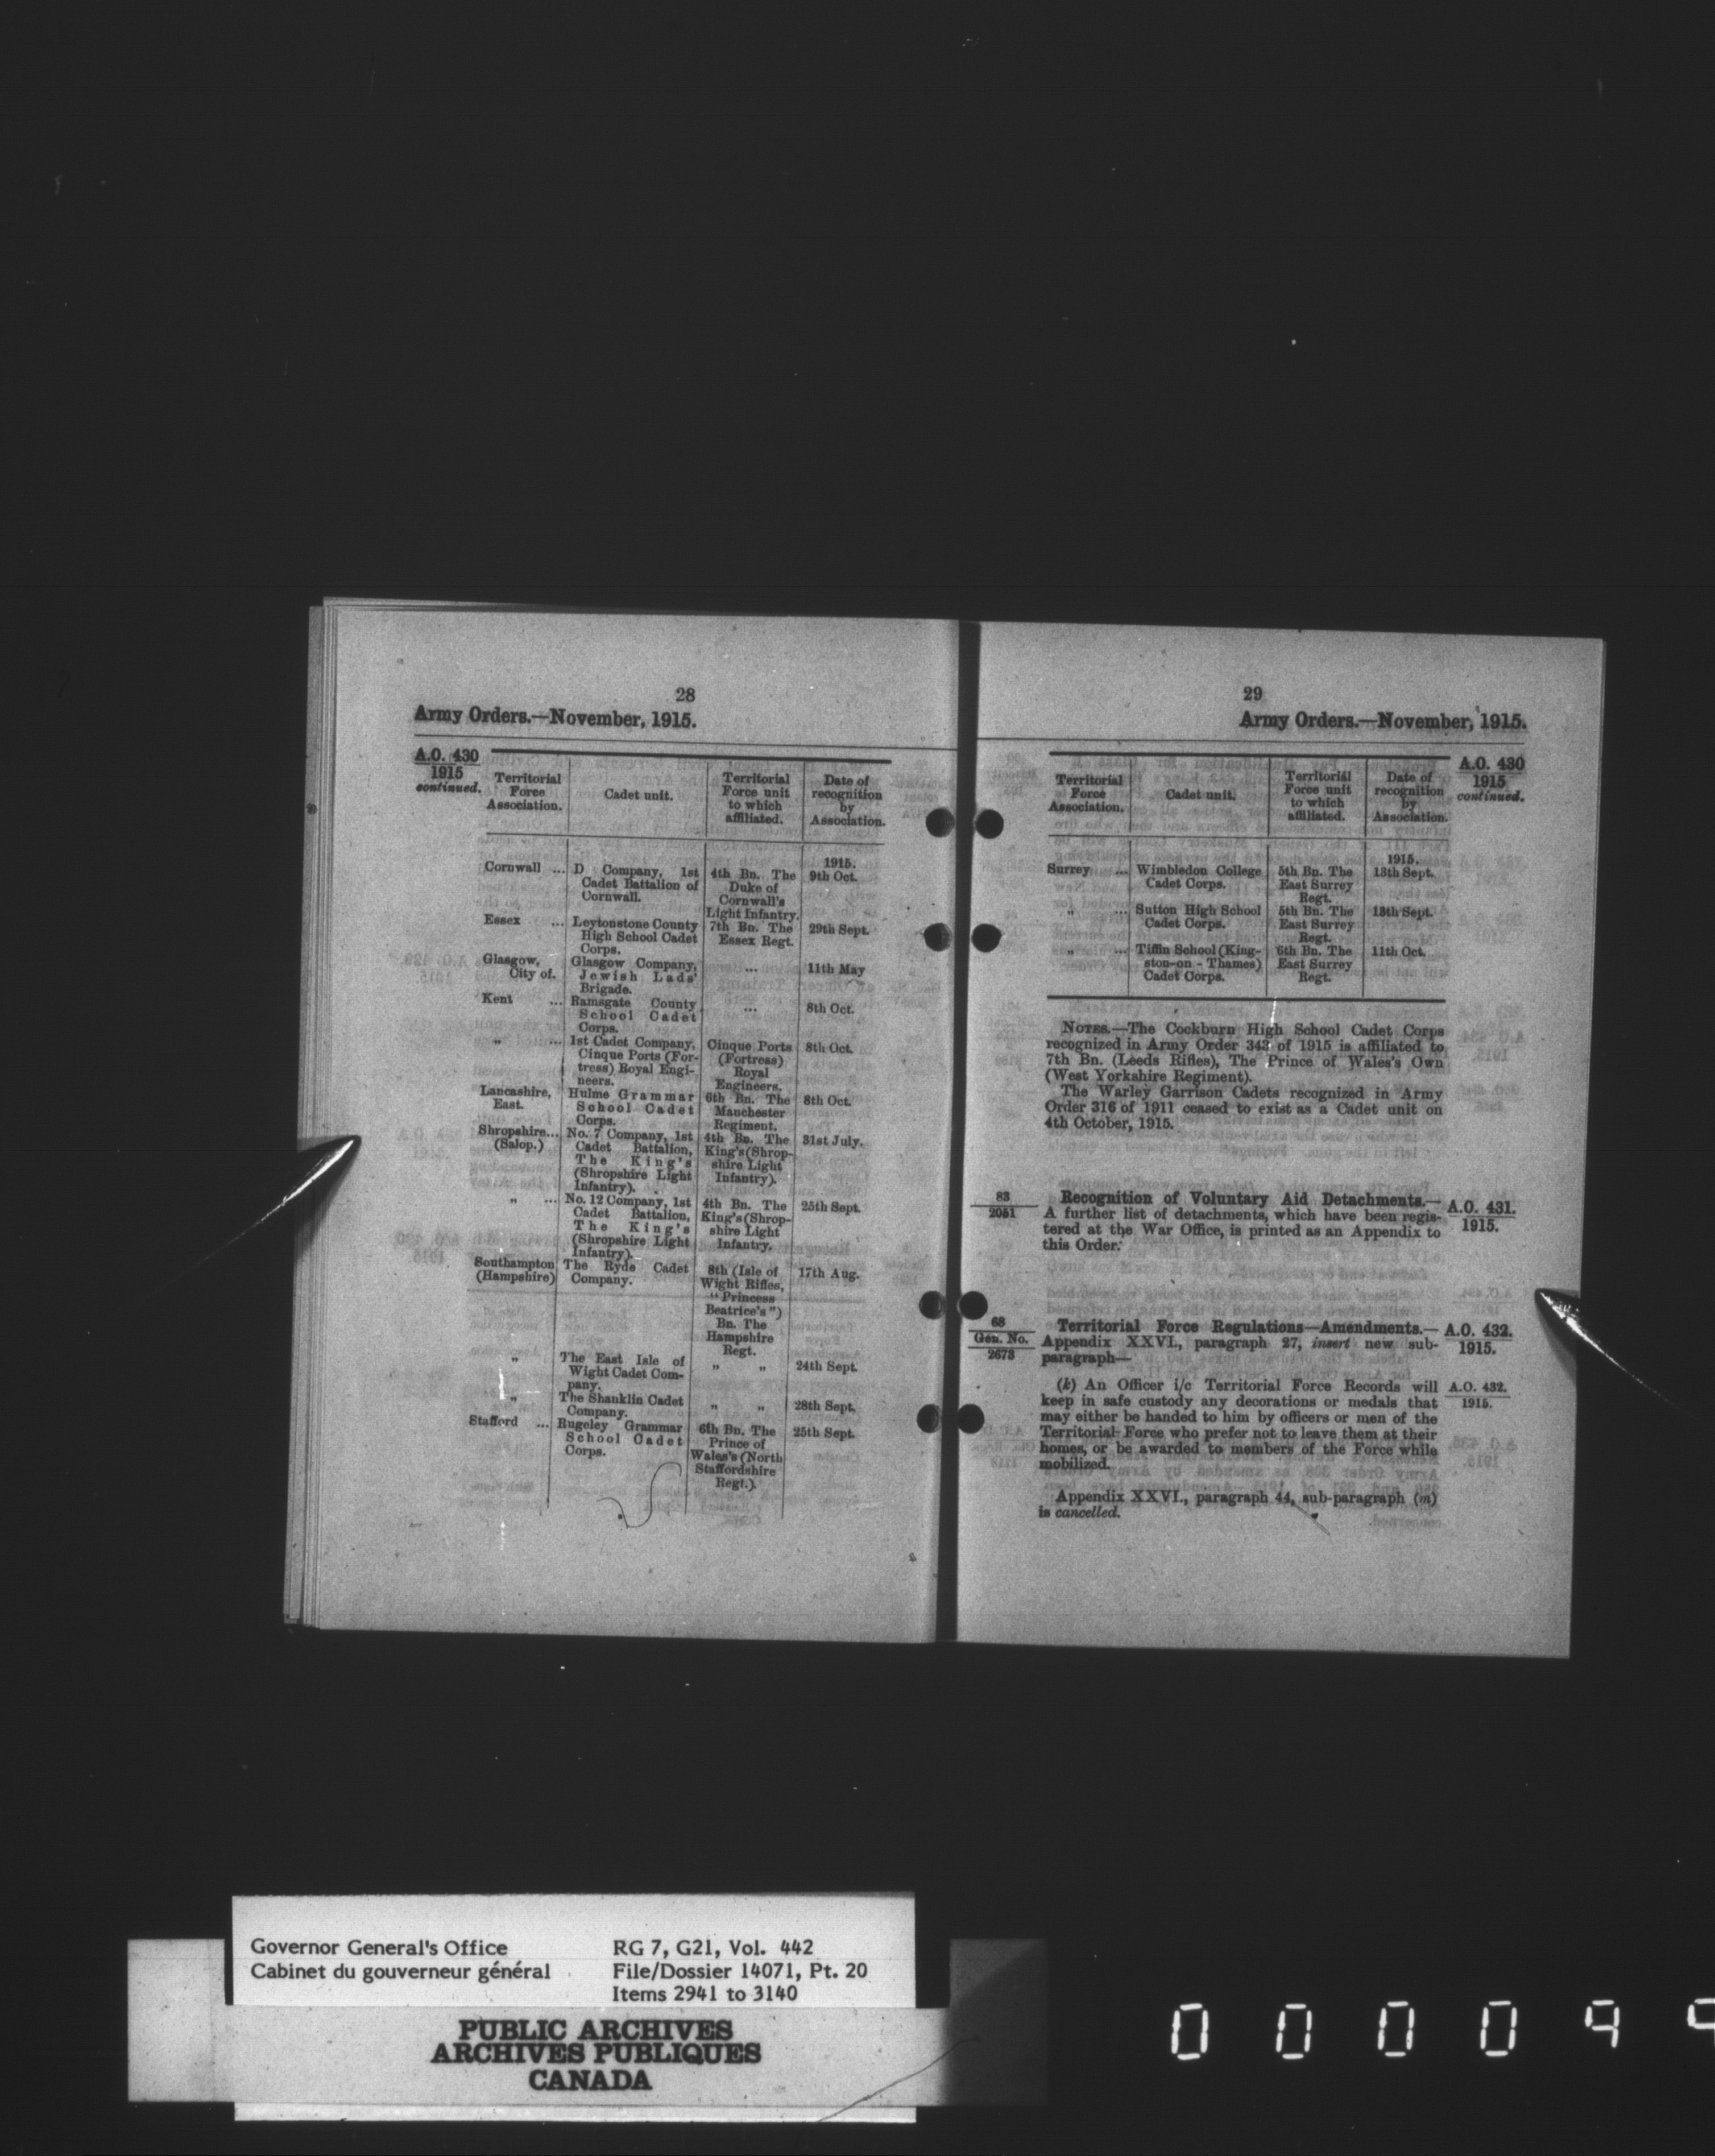 28
Army Orders.—November, 1915.
A.O. 430
1915
continued.
Territorial
Force
Association.
Cadet unit.
Territorial
Force unit
to which
affiliated.
Date of
recognition
by
Association.
1915.
Cornwall ...
D Company, 1st
Cadet Battalion of
Cornwall.
4th Bn. The
Duke of
Cornwall's
Light Infantry.
9th Oct.
Essex ...
Leytonstone County
High School Cadet
Corps.
7th Bn. The
Essex Regt.
29th Sept.
Glasgow,
City of.
Glasgow Company,
Jewish Lads'
Brigade.
...
11th May
Kent ...
Ramsgate County
School Cadet
Corps.
...
8th Oct.
„ ...
1st Cadet Company,
Cinque Ports (For-
tress) Royal Engi-
neers.
Cinque Ports
(Fortress)
Royal
Engineers.
8th Oct.
Lancashire,
East.
Hulme Grammar
School Cadet
Corps.
6th Bn. The
Manchester
Regiment.
8th Oct.
Shropshire...
(Salop.)
No. 7 Company, 1st
Cadet Battalion,
The King's
(Shropshire Light
Infantry).
4th Bn. The
King's (Shrop-
shire Light
Infantry).
31st July.
„ ...
No. 12 Company, 1st
Cadet Battalion,
The King's
(Shropshire Light
Infantry).
4th Bn. The
King's (Shrop-
shire Light
Infantry.
25th Sept.
Southampton
(Hampshire)
The Ryde Cadet
Company.
8th (Isle of
Wight Rifles,
"Princess
Beatrice's")
Bn. The
Hampshire
Regt.
17th Aug.
„
The East Isle of
Wight Cadet Com-
pany.
„ „
24th Sept.
„
The Shanklin Cadet
Company.
„ „
28th Sept.
Stafford ...
Rugeley Grammar
School Cadet
Corps.
6th Bn. The
Prince of
Wales's (North
Staffordshire
Regt.).
25th Sept.
29
Army Orders.—November, 1915.
A.O. 430
1915
continued.
Territorial
Force
Association.
Cadet unit.
Territorial
Force unit
to which
affiliated.
Date of
recognition
by
Association.
1915.
Surrey ...
Wimbledon College
Cadet Corps.
5th Bn. The
East Surrey
Regt.
13th Sept.
„ ...
Sutton High School
Cadet Corps.
5th Bn. The
East Surrey
Regt.
13th Sept.
„ ...
Tiffin School (King-
ston-on-Thames)
Cadet Corps.
6th Bn. The
East Surrey
Regt.
11th Oct.
NOTES.—The Cockburn High School Cadet Corps
recognized in Army Order 343 of 1915 is affiliated to
7th Bn. (Leeds Rifles), The Prince of Wales's Own
(West Yorkshire Regiment).
The Warley Garrison Cadets recognized in Army
Order 316 of 1911 ceased to exist as a Cadet unit on
4th October, 1915.
83
2051
Recognition of Voluntary Aid Detachments.—
A further list of detachments, which have been regis-
tered at the War Office, is printed as an Appendix to
this Order.
A.O. 431.
1915.
68
Gen. No.
2673
Territorial Force Regulations—Amendments.—
Appendix XXVI., paragraph 27, insert new sub-
paragraph—
A.O. 432.
1915.
(k) An Officer i/c Territorial Force Records will
keep in safe custody any decorations or medals that
may either be handed to him by officers or men of the
Territorial Force who prefer not to leave them at their
homes, or be awarded to members of the Force while
mobilized.
A.O. 432.
1915.
Appendix XXVI., paragraph 44, sub-paragraph (m)
is cancelled.
Governor General's Office
Cabinet du gouverneur général
RG 7, G21, Vol. 442
File/Dossier 14071, Pt. 20
Items 2941 to 3140
PUBLIC ARCHIVES
ARCHIVES PUBLIQUES
CANADA
0 0 0 0 9 9